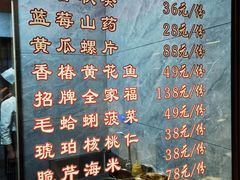 36元/份
蓝莓山药 28元/份
黄瓜螺片 88元/份
香椿黄花鱼 49元/份
招牌全家福 138元/份
毛蛤蜊菠菜 49元/份
琥珀核桃仁 38元/份
脆芹海米 38元/份
78元/份